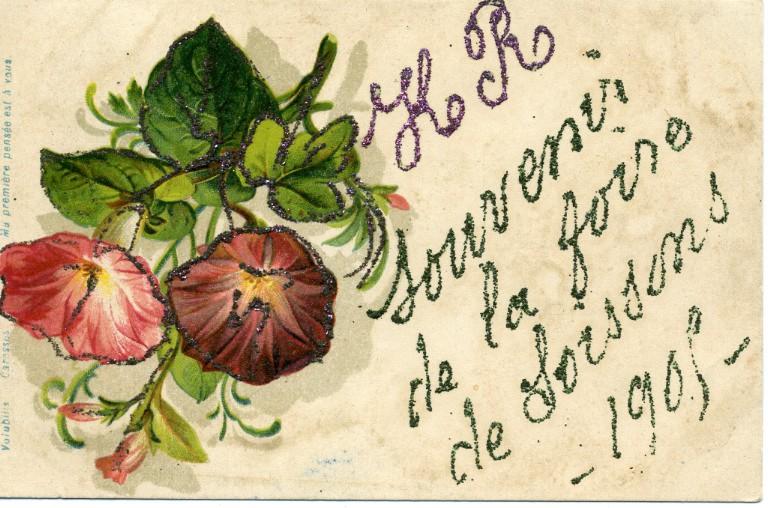 H R
souvenir
de la foire
de Soissons
- 1905 -
Volubilis Caresses Ma première pensée est à vous.